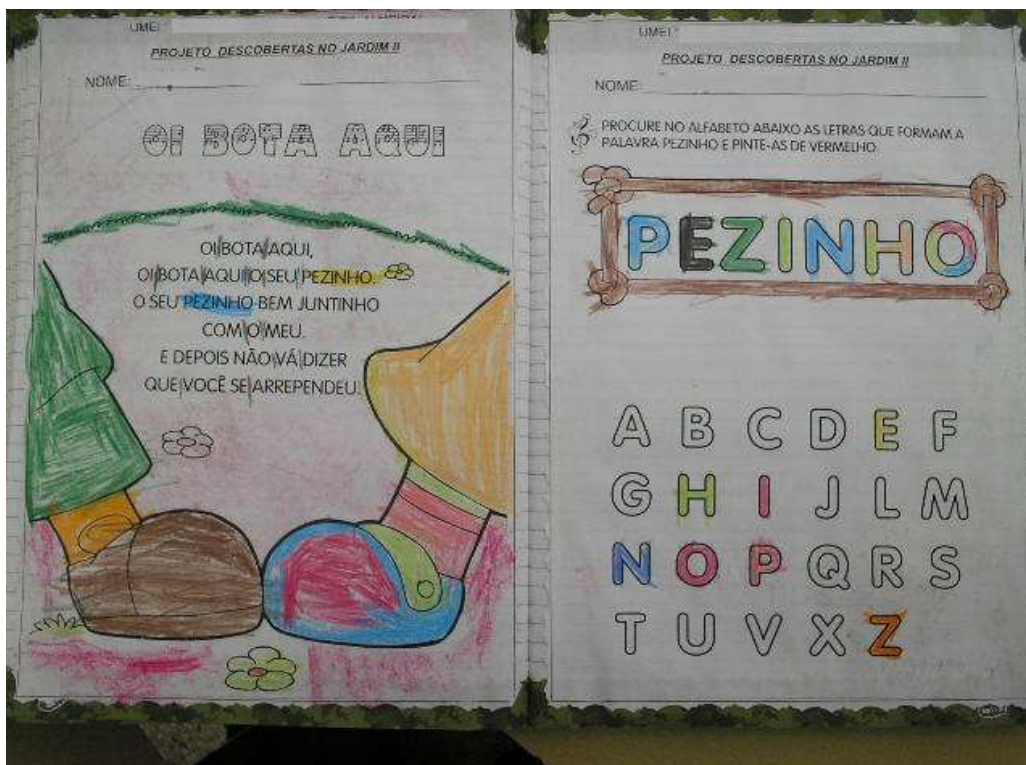 UMEI:
PROJETO DESCOBERTAS NO JARDIM II
NOME:
OI BOTA AQUI
OI BOTA AQUI,
OI BOTA AQUI O SEU PEZINHO.
O SEU PEZINHO BEM JUNTINHO
COM O MEU.
E DEPOIS NÃO VÁ DIZER
QUE VOCÊ SE ARREPENDEU.
UMEI:
PROJETO DESCOBERTAS NO JARDIM II
NOME:
PROCURE NO ALFABETO ABAIXO AS LETRAS QUE FORMAM A
PALAVRA PEZINHO E PINTE-AS DE VERMELHO.
PEZINHO
A B C D E F
G H I J L M
N O P Q R S
T U V X Z